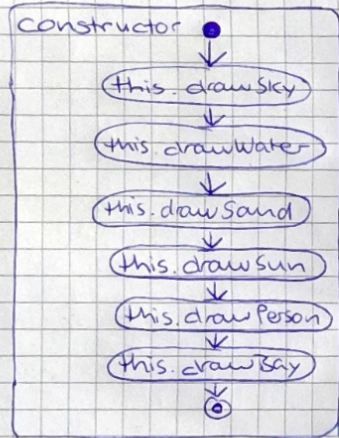 constructor
this.drawSky
this.drawWater
this.drawSand
this.drawSun
this.drawPerson
this.drawBay